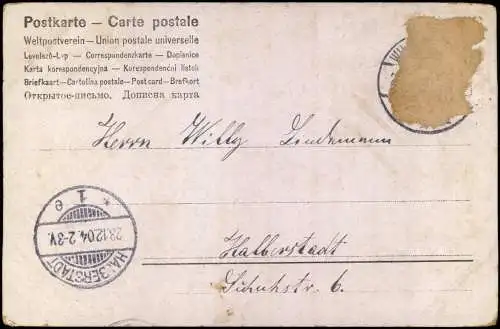 Postkarte — Carte postale
Weltpostverein — Union postale universelle
Levelező-L-p — Correspondenzkarte — Dopisnice
Karta korespondencyjna — Korespondenční lístek
Briefkaart — Cartolina postale — Post card — Brefkort
Открытое-письмо. Дописна карта
Herrn Willy Lindemann
* 1 e
23.12.04. 2-3V.
HALBERSTADT
Halberstadt
Schuhstr. 6.